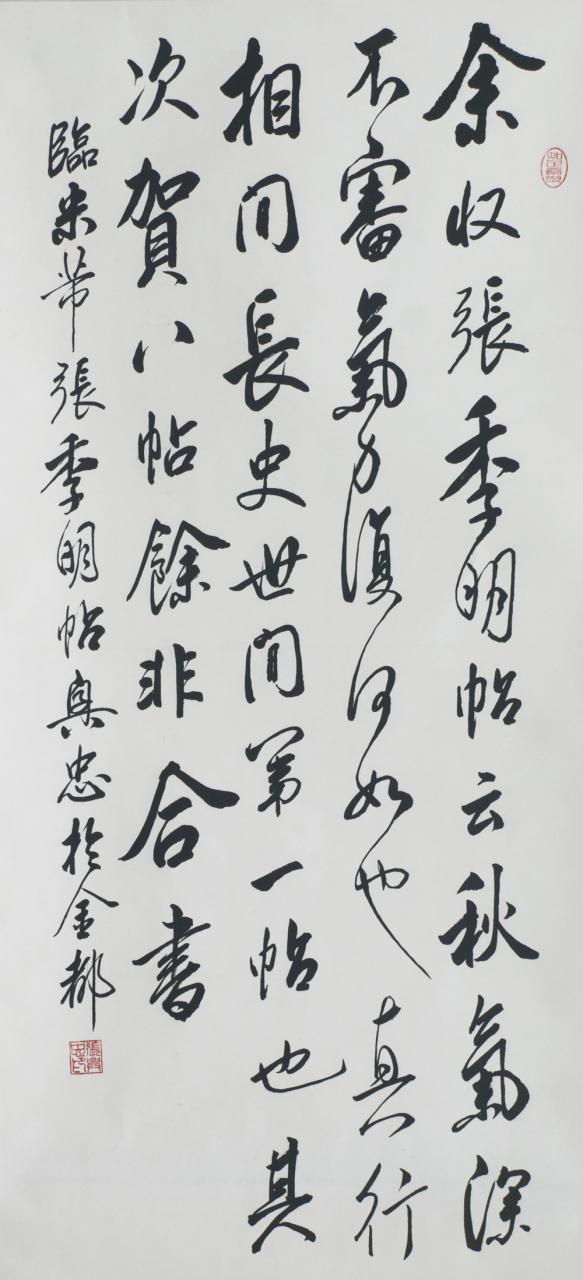 余收張季明帖云秋氣深
不審氣力復何如也真行
相間長史世間第一帖也其
次賀八帖餘非合書
臨米芾張季明帖興忠於金都